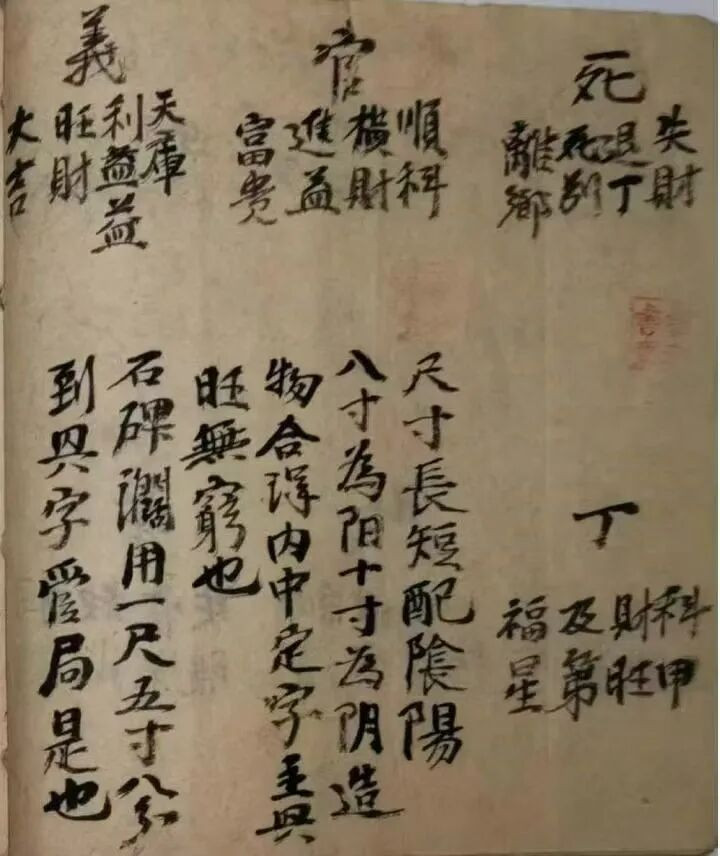 死
失財
退丁
死別
離鄉
官
順科
橫財
進益
富贵
義
天庫
利益益
旺財
大吉
丁
科甲
財旺
及第
福星
尺寸長短配陰陽
八寸為阳十寸為阴造
物合得内中定字主興
旺無窮也
石碑濶用一尺五寸八分
到興字管局是也